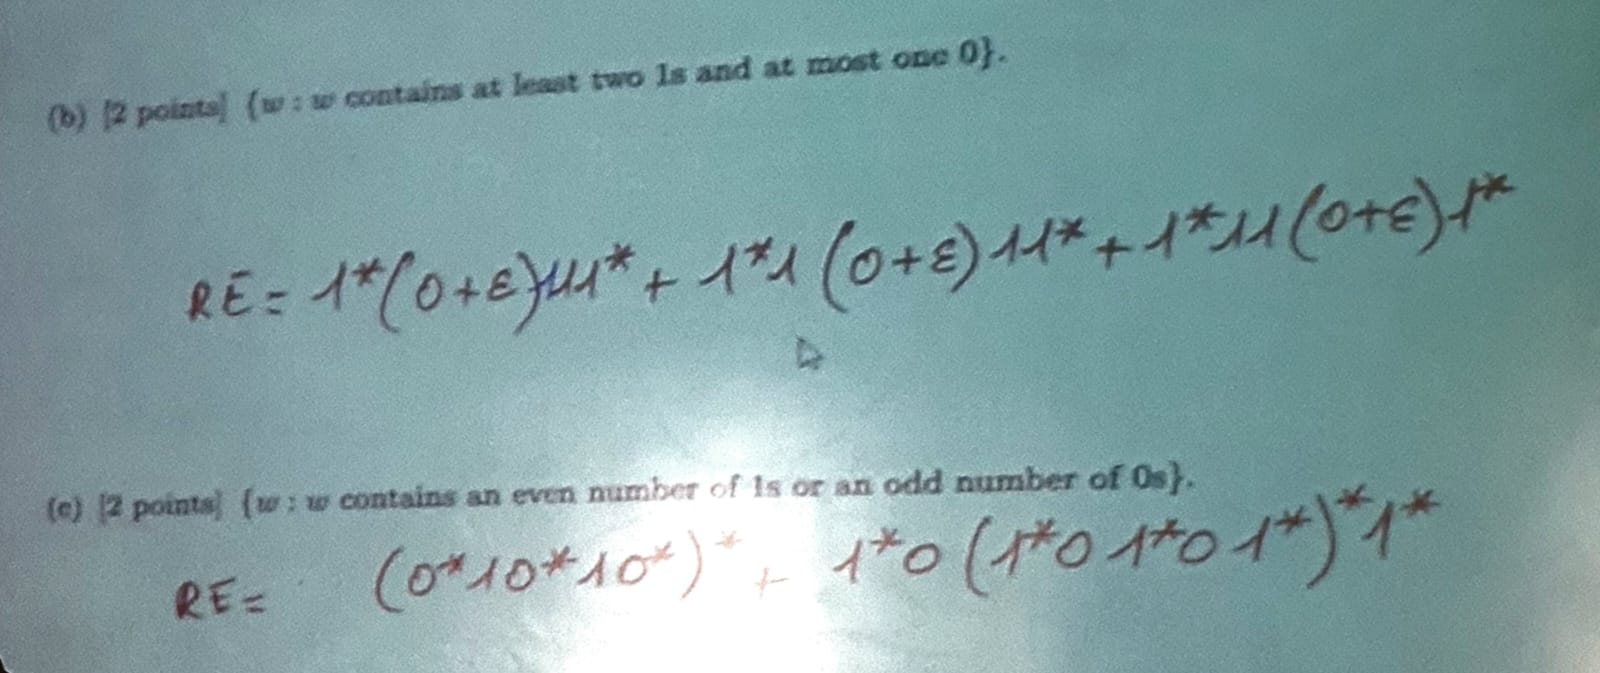 (b) [2 points] {w : w contains at least two 1s and at most one 0}.
RE = 1*(0+ε)111* + 1*1 (0+ε) 11* + 1*11(0+ε)1*
(c) [2 points] {w : w contains an even number of 1s or an odd number of 0s}.
RE = (0*10*10*)* + 1*0 (1*01*01*)*1*